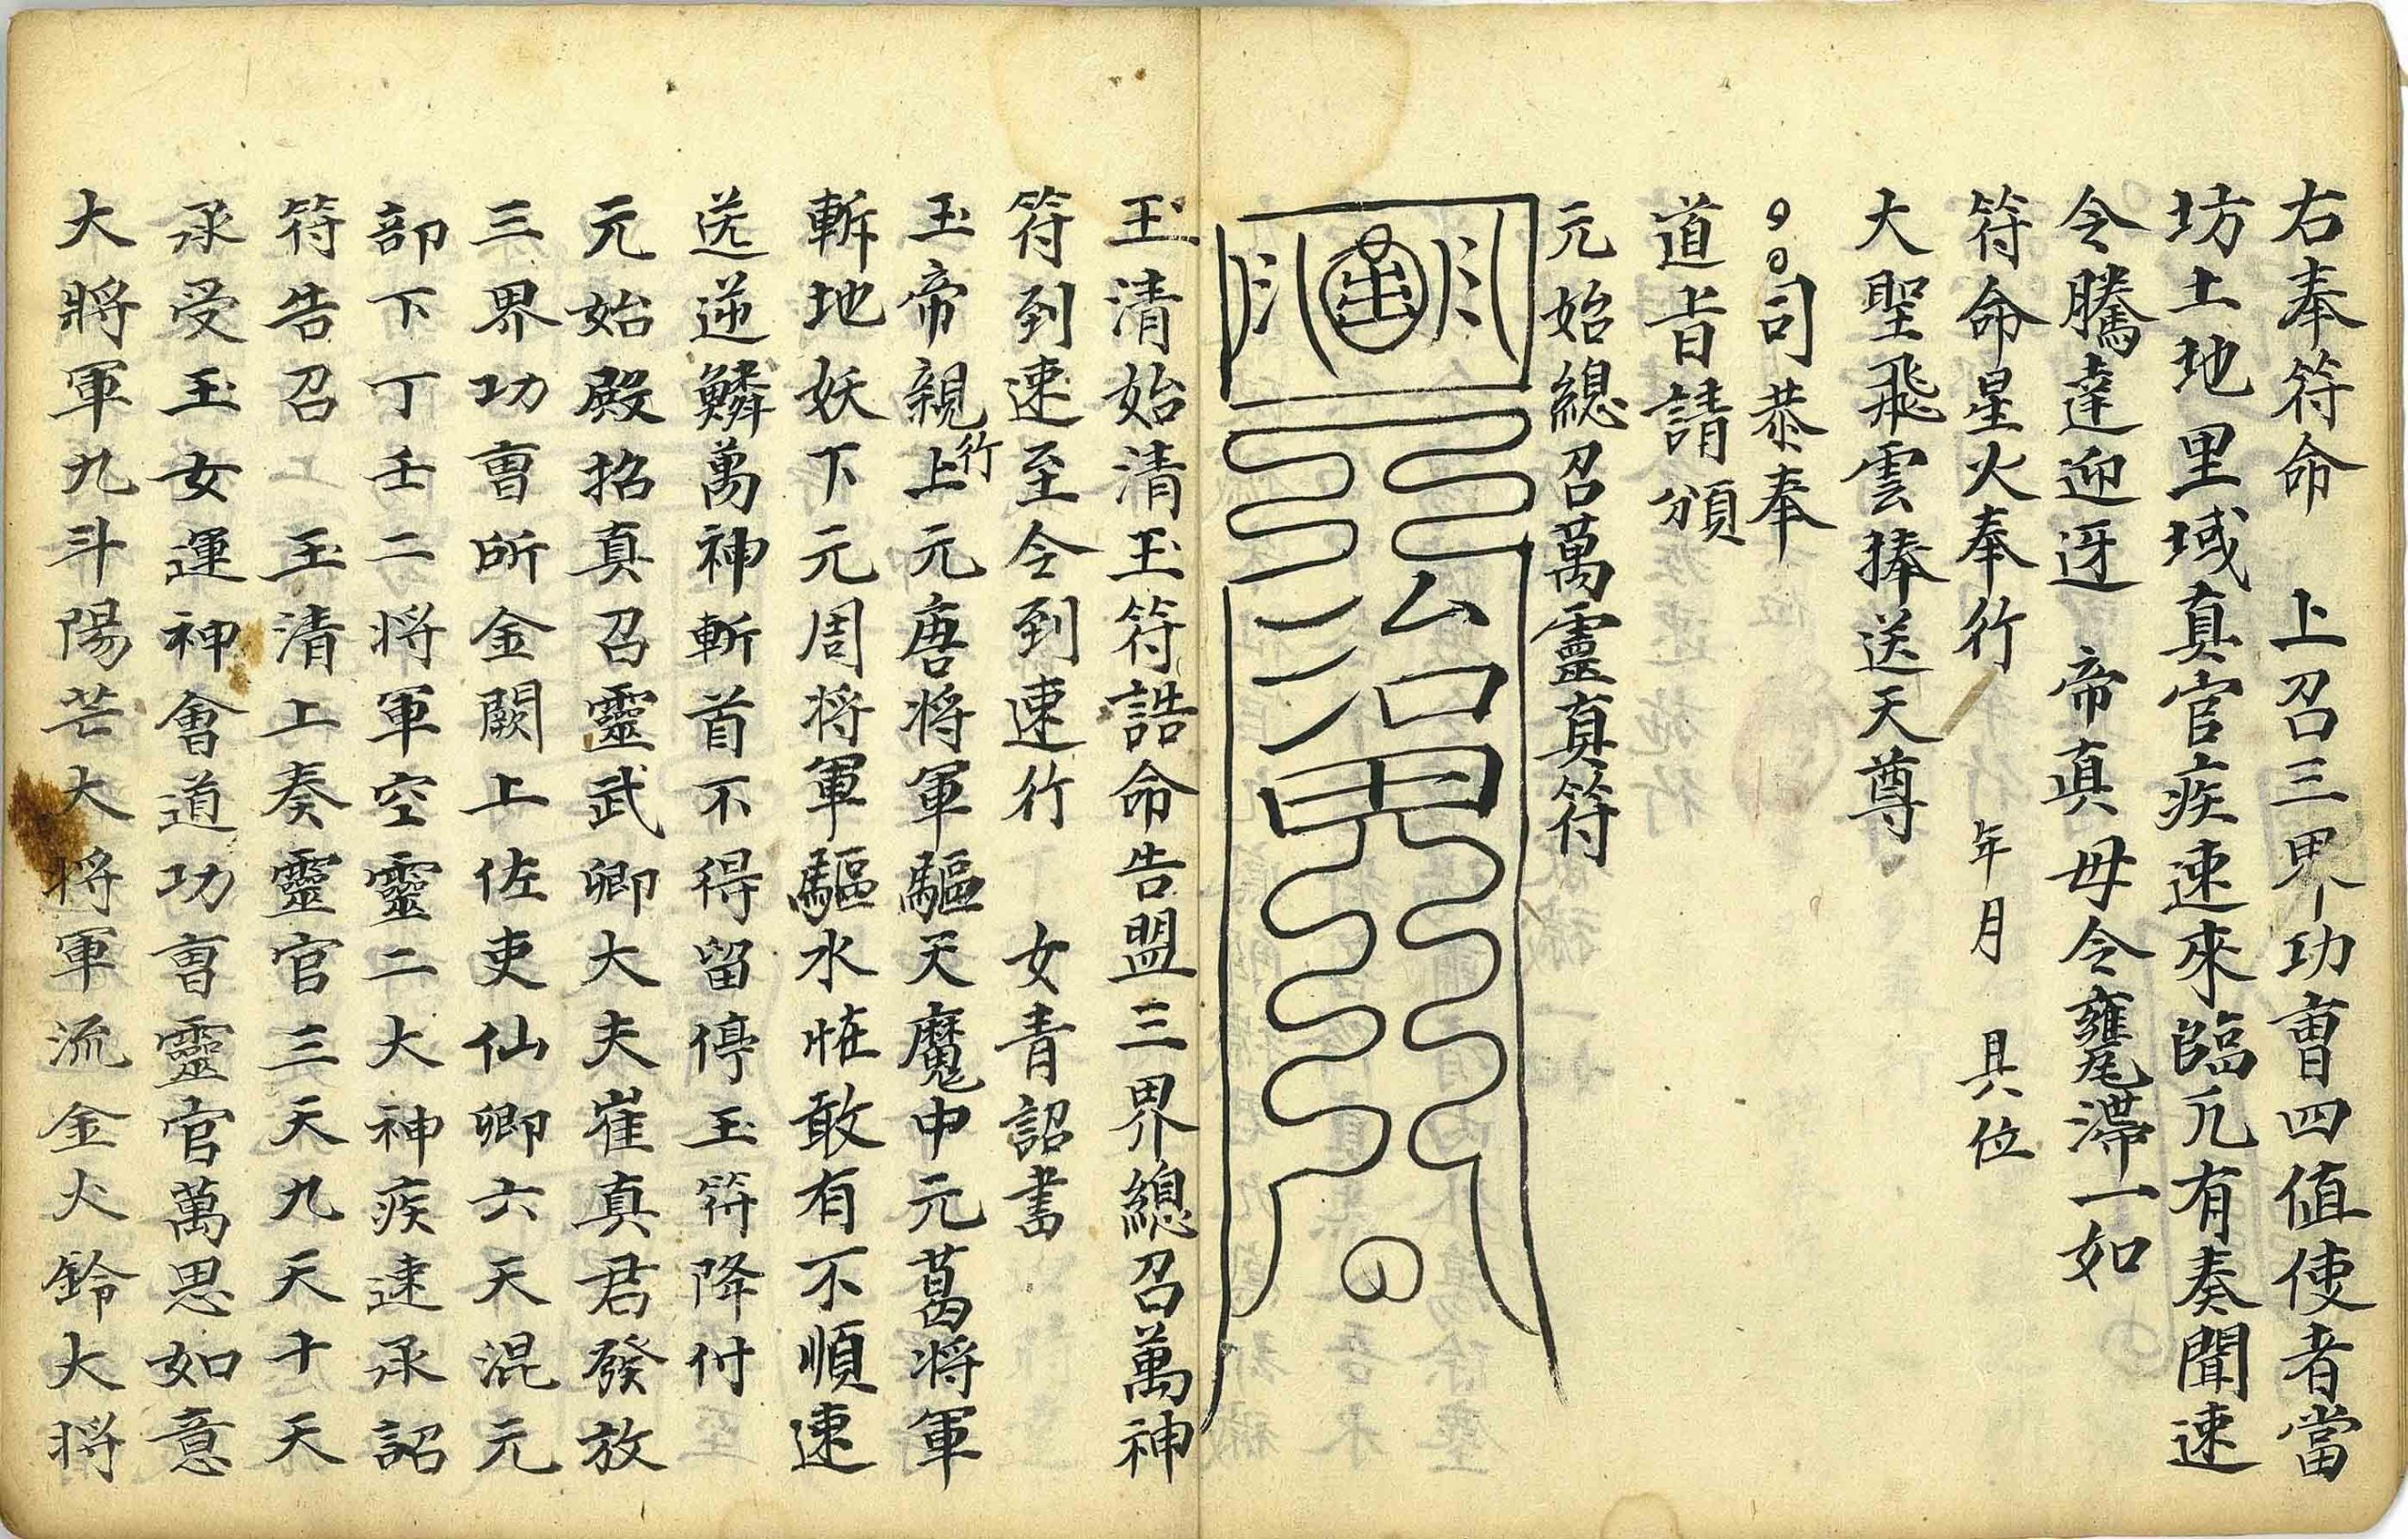 右奉符命　上召三界功曹四值使者當
坊土地里域真官疾速來臨凢有奏聞速
令騰達迎迓　帝真毋令壅滯一如
符命星火奉行　年月　具位
大聖飛雲捧送天尊
司恭奉
道旨請頒
元始總召萬靈真符
玉清始清玉符誥命告盟三界總召萬神
符到速至令到速行　女青詔書
玉帝親行上元唐将軍驅天魔中元葛将軍
斬地妖下元周将軍驅水怪敢有不順速
送逆鱗萬神斬首不得留停玉符降付
元始殿招真召靈武卿大夫崔真君發放
三界功曹所金闕上佐吏仙卿六天混元
部下丁壬二将軍空靈二大神疾速承詔
符告召上　玉清上奏靈官三天九天十天
承受玉女運神會道功曹靈官萬思如意
大將軍九斗陽芒大将軍流金火鈴大将